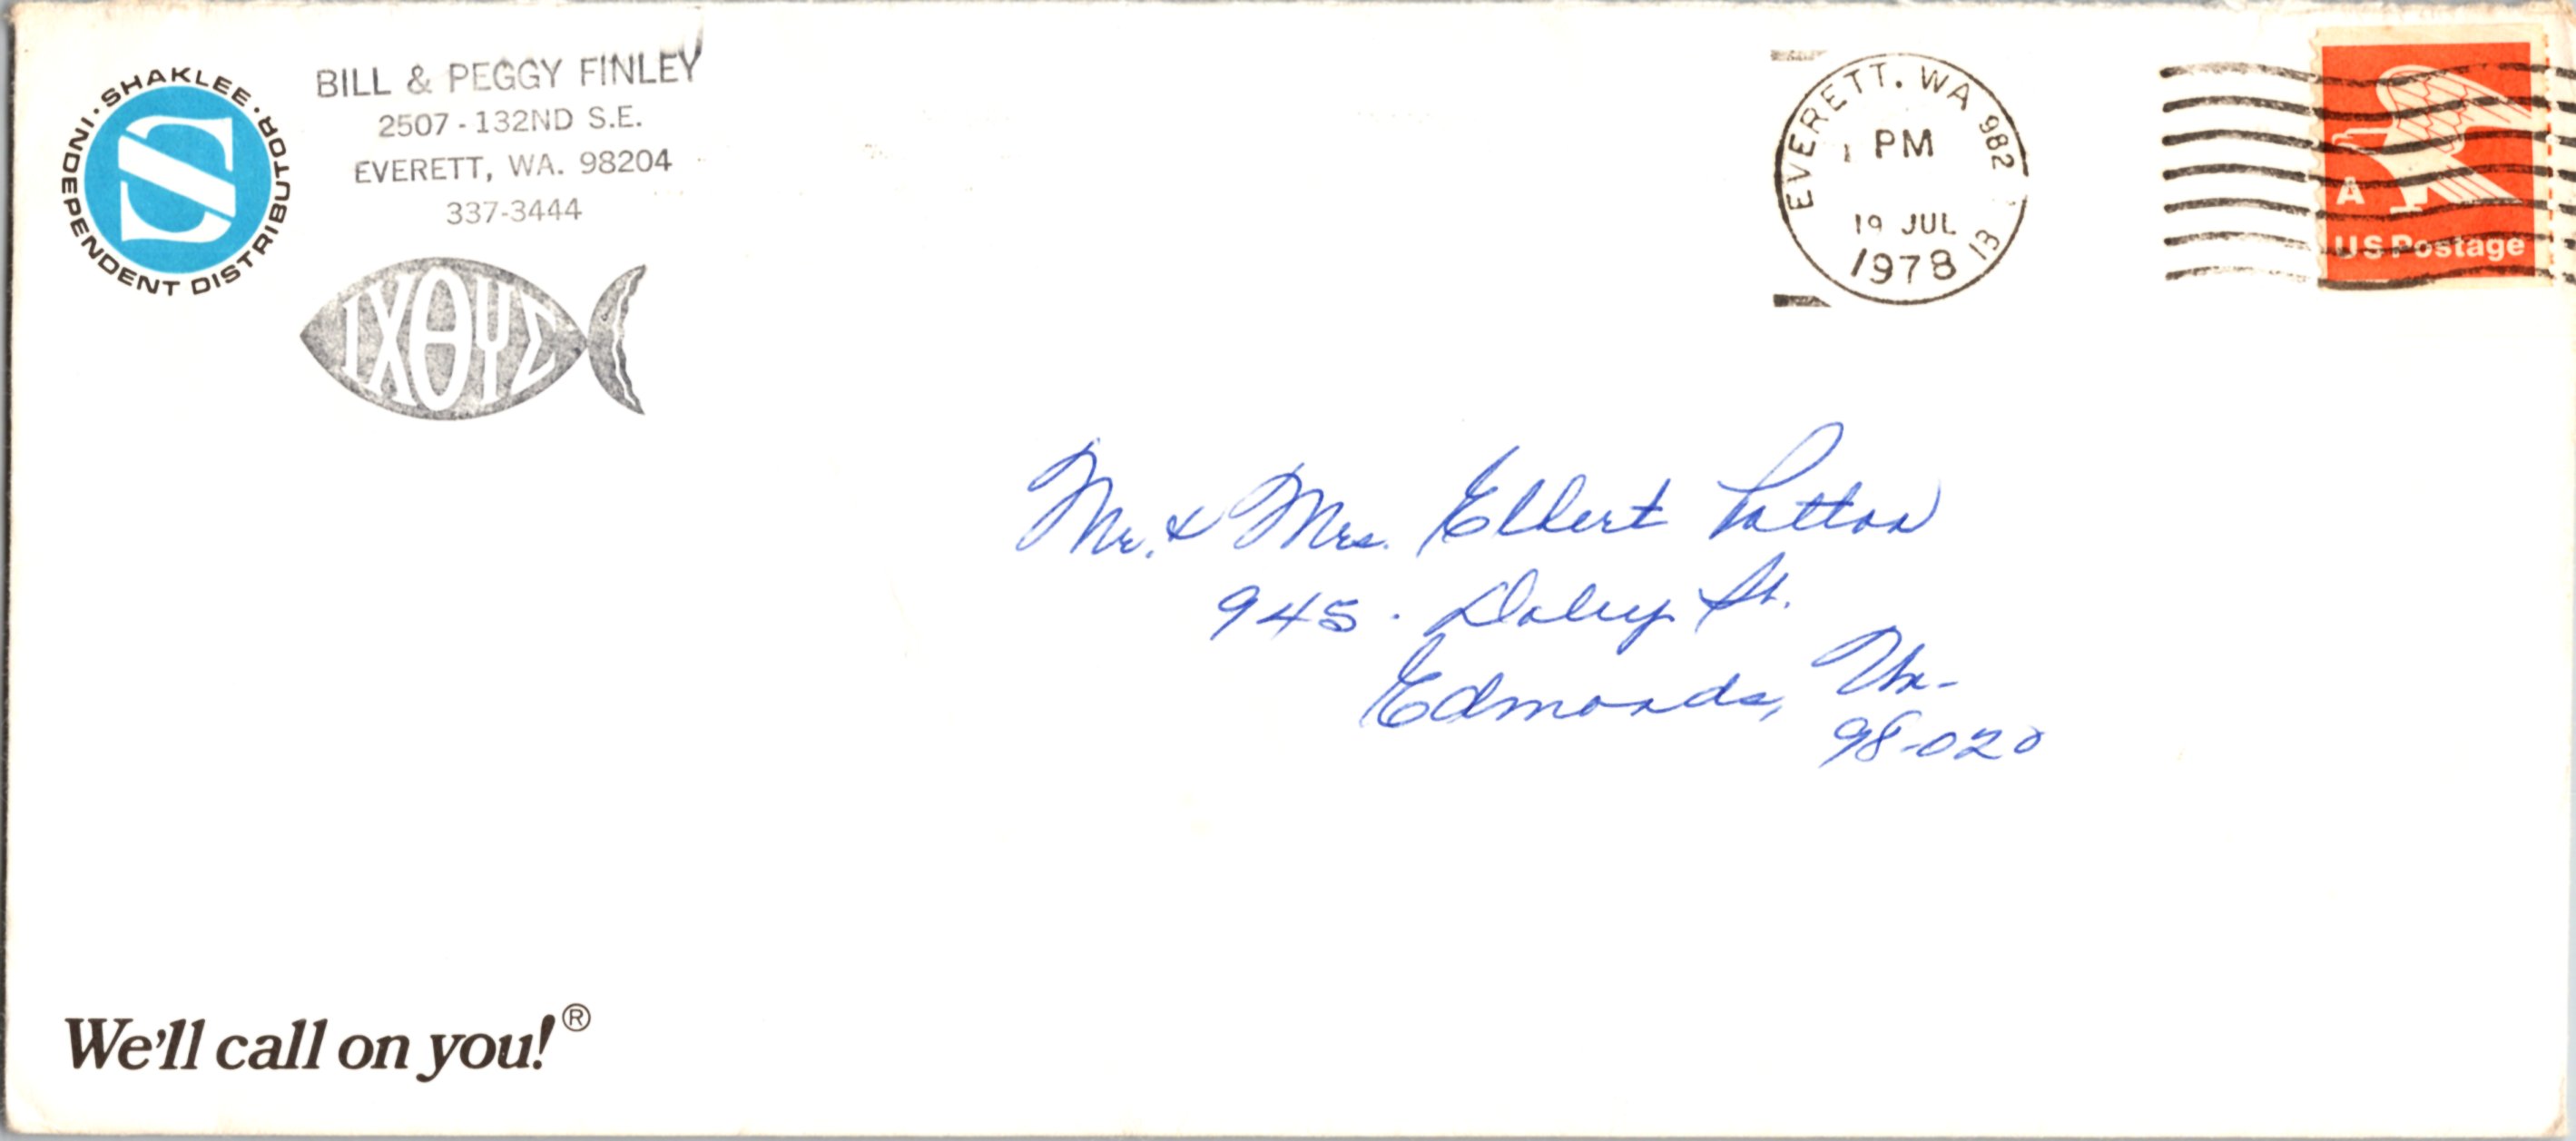 ·SHAKLEE·
INDEPENDENT DISTRIBUTOR
S
BILL & PEGGY FINLEY
2507 - 132ND S.E.
EVERETT, WA. 98204
337-3444
ΙΧΘΥΣ
EVERETT. WA 982
PM
19 JUL
1978
13
A
US Postage
Mr. & Mrs. Elbert Patton
945 - Daley St.
Edmonds, Wn-
98-020
We'll call on you!®